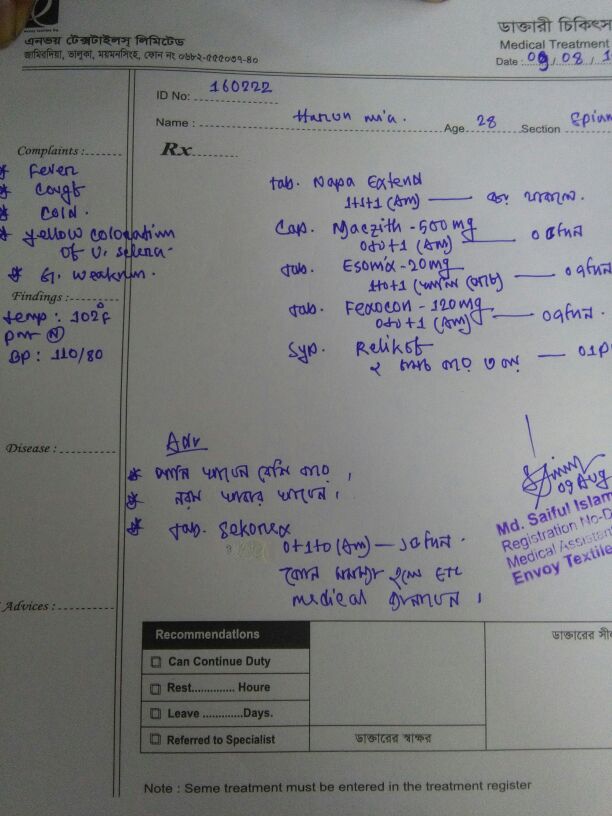 এনভয় টেক্সটাইলস্ লিমিটেড
জামিরদিয়া, ভালুকা, ময়মনসিংহ, ফোন নং ০৬৮২-৫৫৫০৩৭-৪০
ডাক্তারী চিকিৎস
Medical Treatment
Date : 09/08/1
ID No: 160222
Name : Harun mia. Age 28 Section Spinn
Complaints:
Rx
* Fever
* Cough
* Cold.
* yellow coloration
of U. sclera-
* G. weakness.
Findings :
temp : 102°f
BP : 110/80
tab. Napa Extend
1+1+1 (Am) — জ্বর থাকলে.
Cap. Maczith - 500mg
0+0+1 (Am) —
tab. Esomix - 20mg
1+0+1
tab. Fexocon - 120mg
0+0+1 (Am) —
Syp.
২ চামচ করে ৩ বার —
Disease :
Adv
* পানি খাবেন বেশি করে।
* নরম খাবার খাবেন।
* tab.
0+1+0 (Am) —
কোন সমস্যা হলে ETL
medical জানাবেন।
09 Aug
Md. Saiful Islam
Registration No-D
Medical Assistan
Envoy Textile
Advices :
Recommendations
Can Continue Duty
Rest.............. Houre
Leave ............Days.
Referred to Specialist
ডাক্তারের স্বাক্ষর
ডাক্তারের সী
Note : Seme treatment must be entered in the treatment register